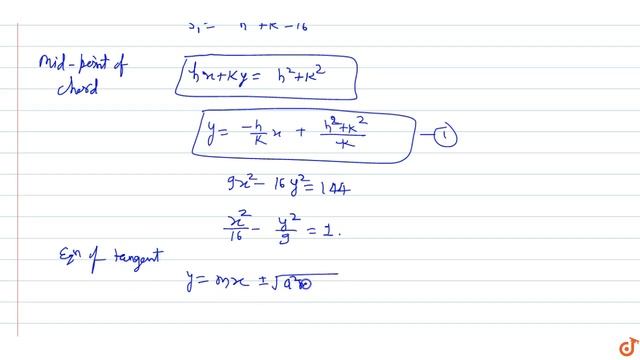 S₁ = h² + k² - 16
mid-point of chord
hx + ky = h² + k²
y = -h/k x + (h² + k²)/k — ①
9x² - 16y² = 144
x²/16 - y²/9 = 1.
Eqn of tangent
y = mx ± √a²
doubtnut